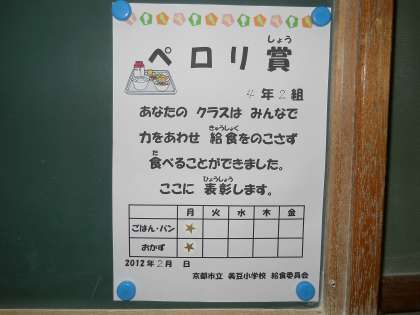 しょう
ペロリ賞
4年2組
あなたの クラスは みんなで
きゅうしょく
力をあわせ 給食をのこさず
た
食べることができました。
ひょうしょう
ここに 表彰します。
月 火 水 木 金
ごはん・パン ★
おかず ★
2012年2月 日
京都市立 美豆小学校 給食委員会